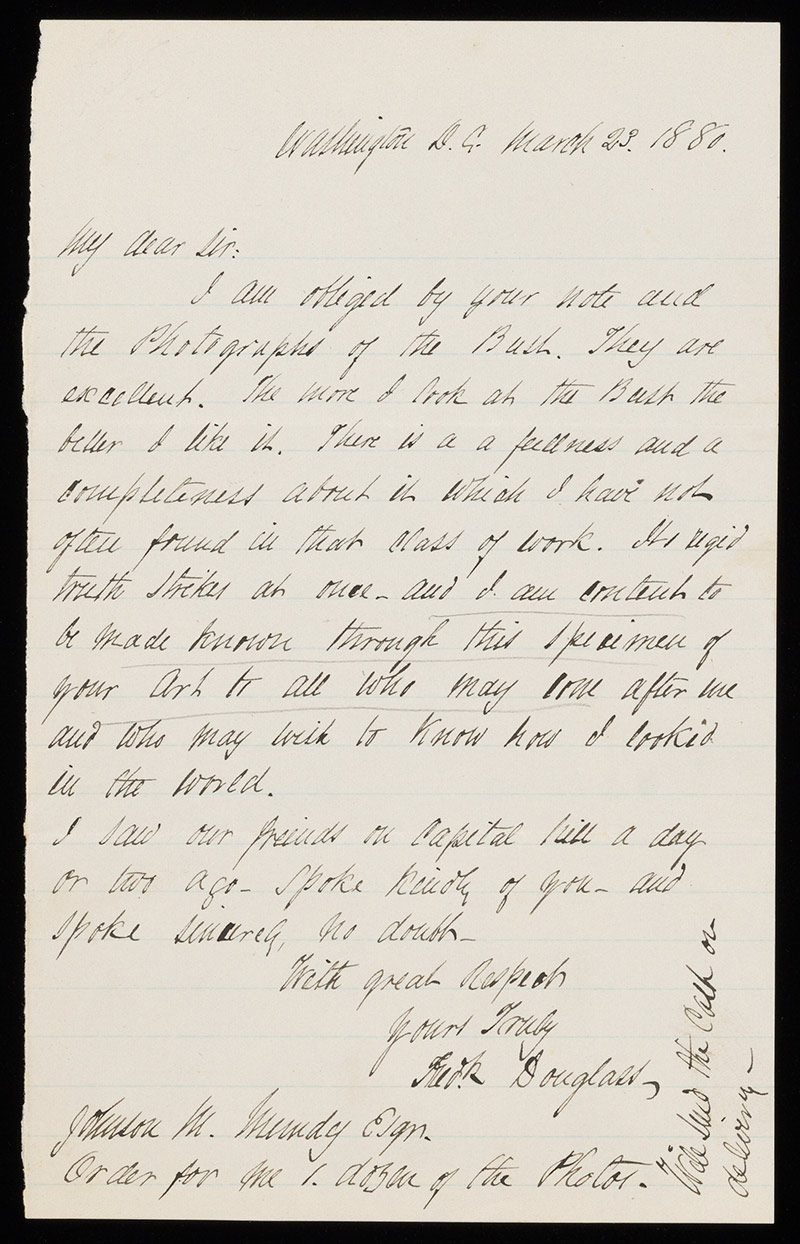 Washington D.C. March 23. 1880.
My dear Sir:
I am obliged by your note and
the Photographs of the Bust. They are
excellent. The more I look at the Bust the
better I like it. There is a a fullness and a
completeness about it which I have not
often found in that class of work. Its rigid
truth strikes at once - and I am content to
be made known through this specimen of
your Art to all who may come after me
and who may wish to know how I looked
in the world.
I saw our friends on Capital hill a day
or two ago - spoke kindly of you - and
spoke sincerely, no doubt -
With great respect
Yours Truly
Fredk Douglass
Johnson M. Mundy Esqr.
Order for me 1. dozen of the Photos. -
Will send the Cash on
delivery -